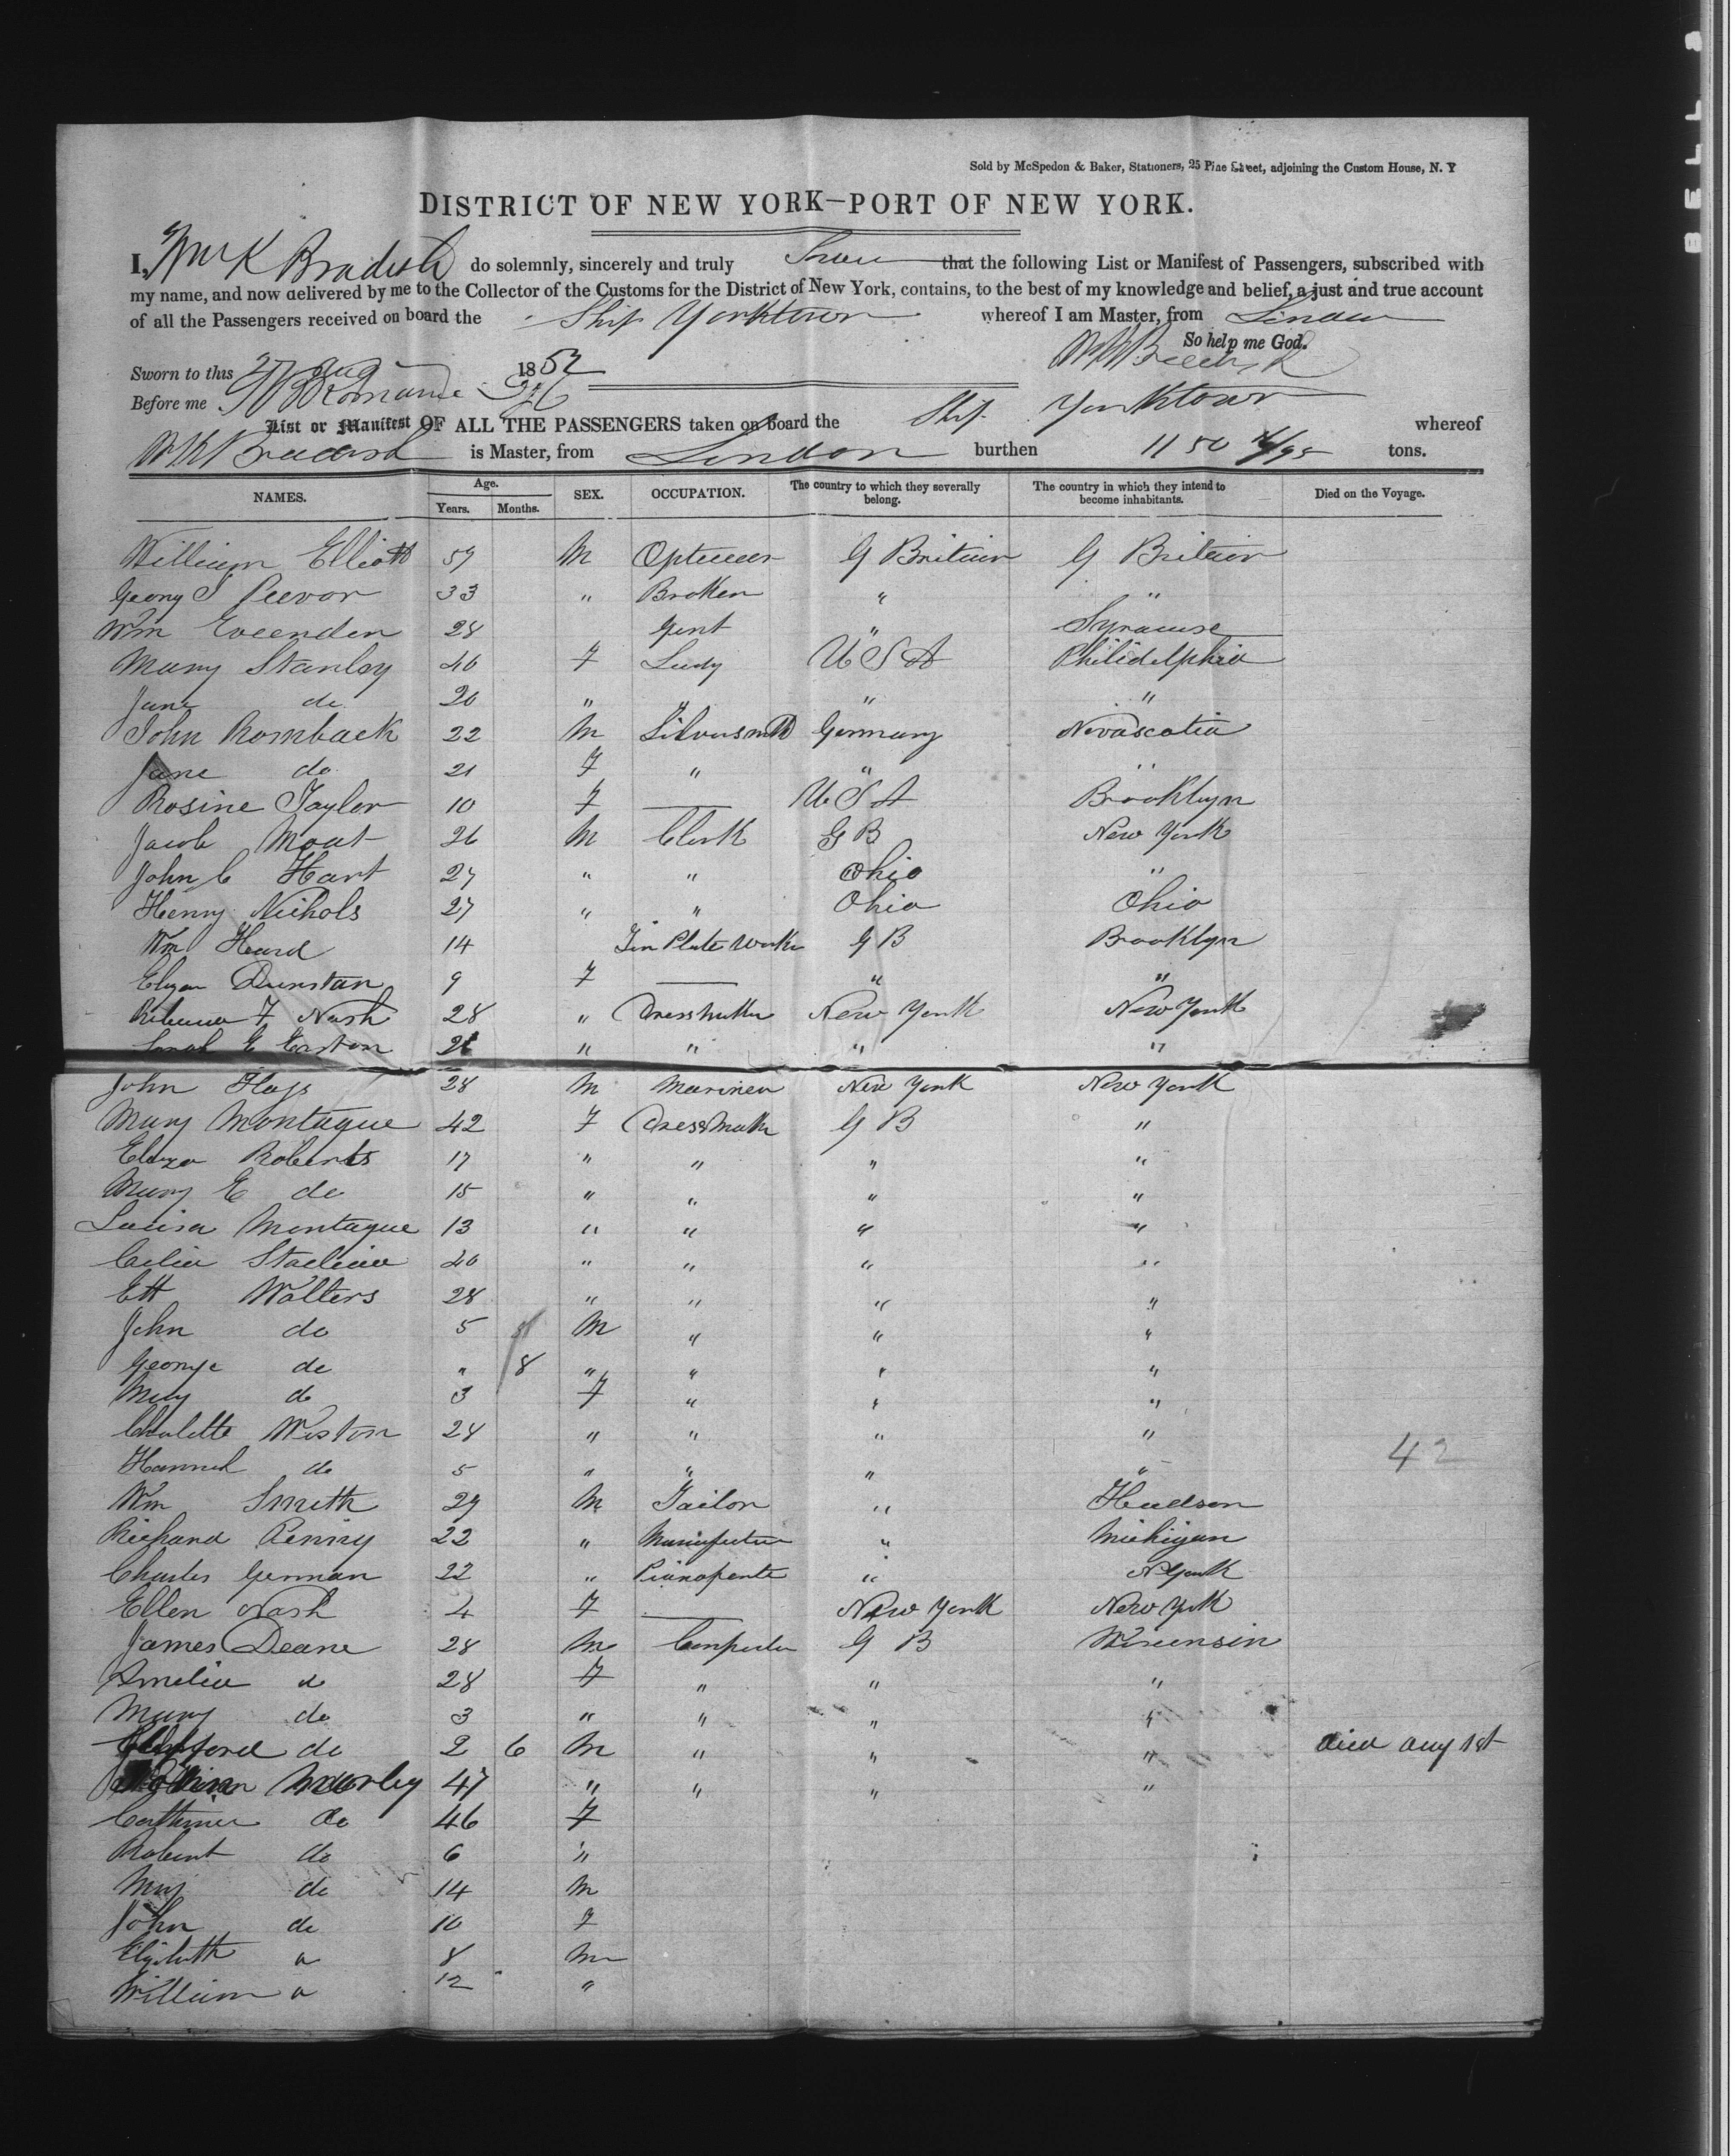 Sold by McSpedon & Baker, Stationers, 25 Pine Street, adjoining the Custom House, N. Y
DISTRICT OF NEW YORK—PORT OF NEW YORK.
I, Wm K Bradish do solemnly, sincerely and truly Swear that the following List or Manifest of Passengers, subscribed with
my name, and now delivered by me to the Collector of the Customs for the District of New York, contains, to the best of my knowledge and belief, a just and true account
of all the Passengers received on board the Ship Yorktown whereof I am Master, from London
So help me God.
Sworn to this 27 Aug 1852 W K Bradish
Before me
List or Manifest OF ALL THE PASSENGERS taken on board the Ship Yorktown whereof
W K Bradish is Master, from London burthen 1150 /95 tons.
NAMES. Age. Years. Months. SEX. OCCUPATION. The country to which they severally belong. The country in which they intend to become inhabitants. Died on the Voyage.
William Elliott 59 M G Britain G Britain
Georg S Peevor 33 " Broker " "
Wm Eveenden 28 Gent " Syracuse
Mary Stanley 40 F Lady U S A Philidelphia
Jane do 20 " " " "
John Rombach 22 M Silversmith Germany Novascotia
Jane do 21 F " " "
Rosine Taylor 10 F — U S A Brooklyn
Jacob Moat 26 M Clerk G B New York
John C Hart 27 " " Ohio "
Henry Nichols 27 " " Ohio Ohio
Wm Hurd 14 Tin Plate Worker G B Brooklyn
Eliza Dunstan 9 F — " "
Rebecca F Nash 28 " Dressmaker New York New York
Sarah E " " " "
John Hays 28 M Mariner New York New York
Mary Montague 42 F Dressmaker G B "
Eliza Roberts 17 " " " "
Mary E do 15 " " " "
Louisa Montague 13 " " " "
Celia 40 " " " "
Ett Walters 28 " " " "
John do 5 M " " "
George do " 8 " " " "
Mary do 3 F " " "
Charlotte Weston 28 " " " "
Hannah do 5 " " " "
42
Wm Smith 29 M Tailor " Hudson
Richard Penny 22 " Manufacturer " Michigan
Charles German 22 " Pianoforte " N York
Ellen Nash 4 F — New York New York
James Deane 28 M Carpenter G B Wisconsin
Amelia do 28 F " " "
Mary do 3 " " " "
do 2 6 M " " " died Aug 1st
Morley 47 " " " "
Catherine do 46 F
Robert do 6 "
Mary do 14 M
John do 10 F
Elizabeth do 8 M
William do 12 "
BELL &